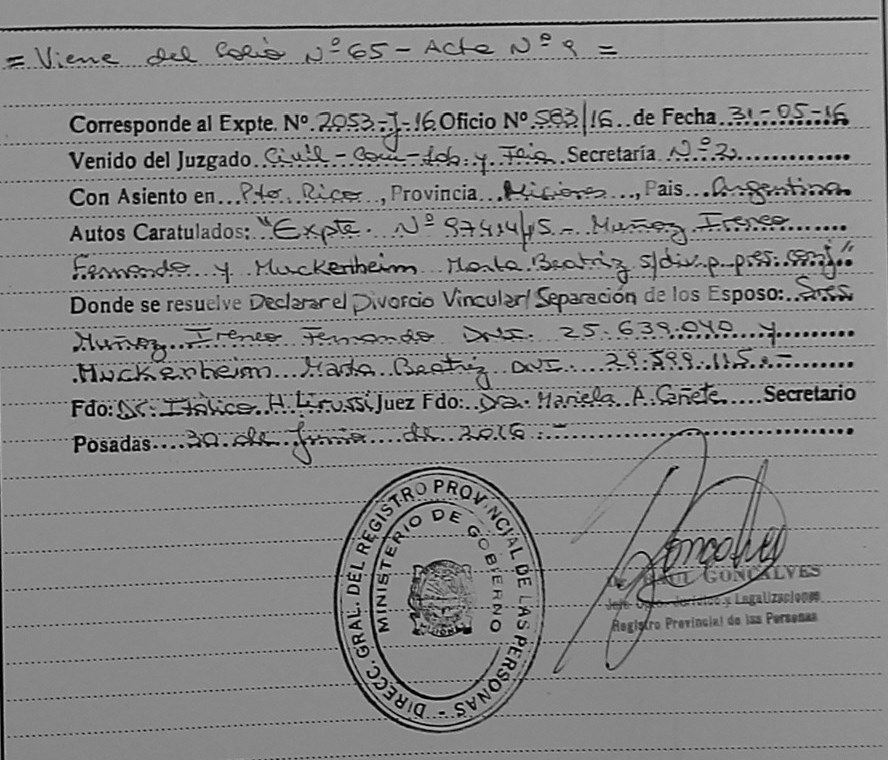 = Viene del Folio Nº 65 - Acta Nº 9 =
Corresponde al Expte. Nº 2053-J-16 Oficio Nº 583/16 de Fecha 31-05-16
Venido del Juzgado Civil - Com - Lab. y Flia Secretaría Nº 2
Con Asiento en Pto. Rico, Provincia Misiones, Pais Argentina
Autos Caratulados: "Expte. Nº 97414/15 - Muñoz Ireneo
Fernando y Muckenheim Marta Beatriz s/div. p. pres. conj"
Donde se resuelve Declarar el Divorcio Vincular/Separación de los Esposo: Sres
Muñoz Ireneo Fernando DNI. 25.639.040 y
Muckenheim Marta Beatriz DNI. 29.599.115.-
Fdo: Dr. Itálico H. Lirussi Juez Fdo: Dra. Mariela A. Cañete Secretario
Posadas 30 de Junio de 2016.-
DIRECC. GRAL. DEL REGISTRO PROVINCIAL DE LAS PERSONAS -
MINISTERIO DE GOBIERNO
RAUL GONCALVES
Jefe Dpto. Jurídico y Legalizaciones
Registro Provincial de las Personas